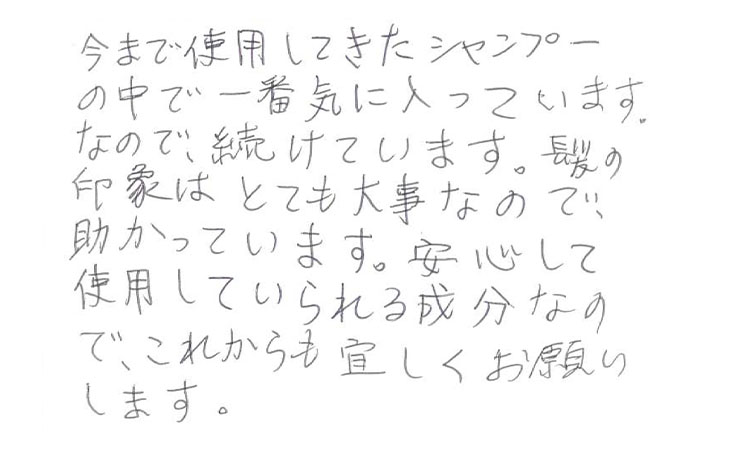 今まで使用してきたシャンプー
の中で一番気に入っています.
なので、続けています。髪の
印象はとても大事なので、
助かっています。安心して
使用していられる成分なの
で、これからも宜しくお願い
します。